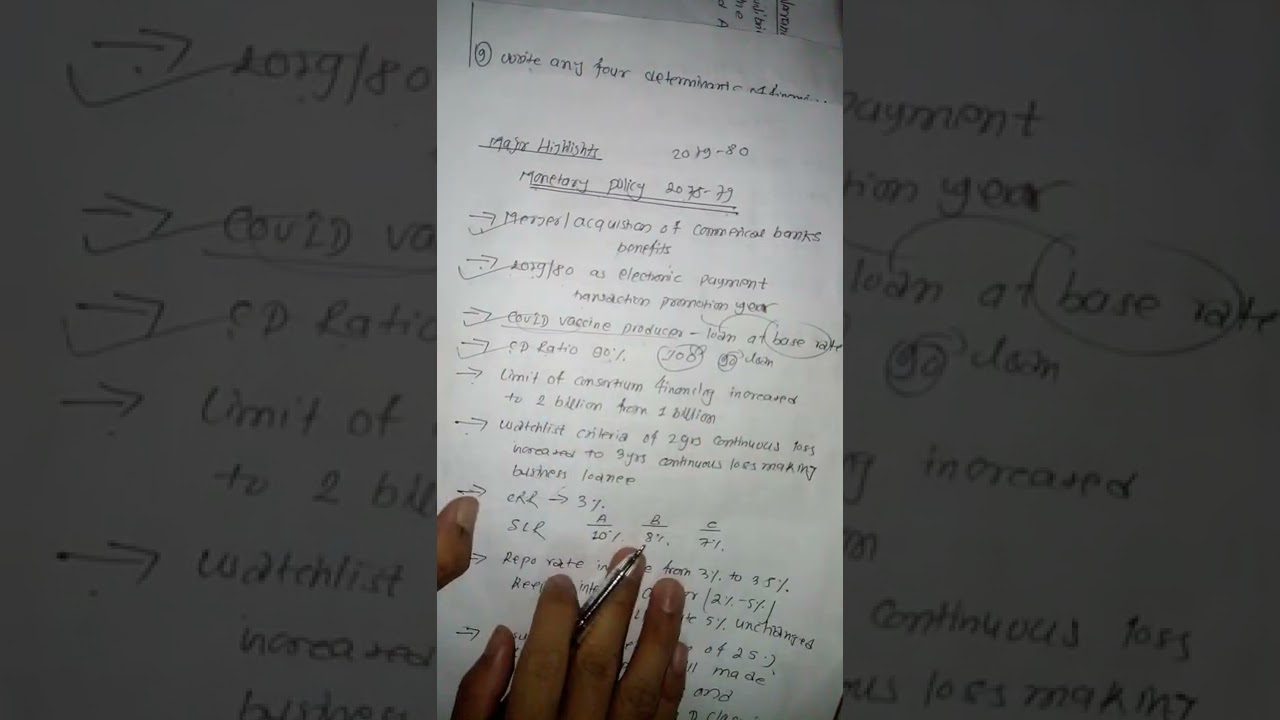 ⑨ write any four determinants
Major Highlights 2079-80
Monetary policy 2078-79
→ Merger/acquisition of commerical banks
benefits
→ 2079/80 as electronic payment
transaction promotion year
→ COVID vaccine producer - loan at base rate
→ CD Ratio 90%. 100 90 loan
→ Limit of consortium financing increased
to 2 billion from 1 billion
→ Watchlist criteria of 2yrs continuous loss
increased to 3yrs continuous loss making
business loanee
→ CRR → 3%.
A B C
SLR 10%. 8%. 7%.
→ Repo rate from 3% to 3.5%.
(2%-5%)
5% unchanged
→ of 25
made
and